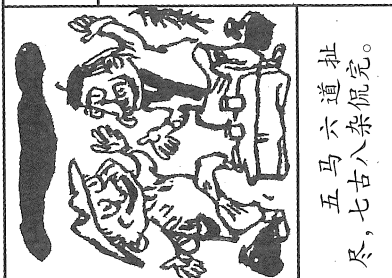 五马六道扯
尽，七古八杂侃完。